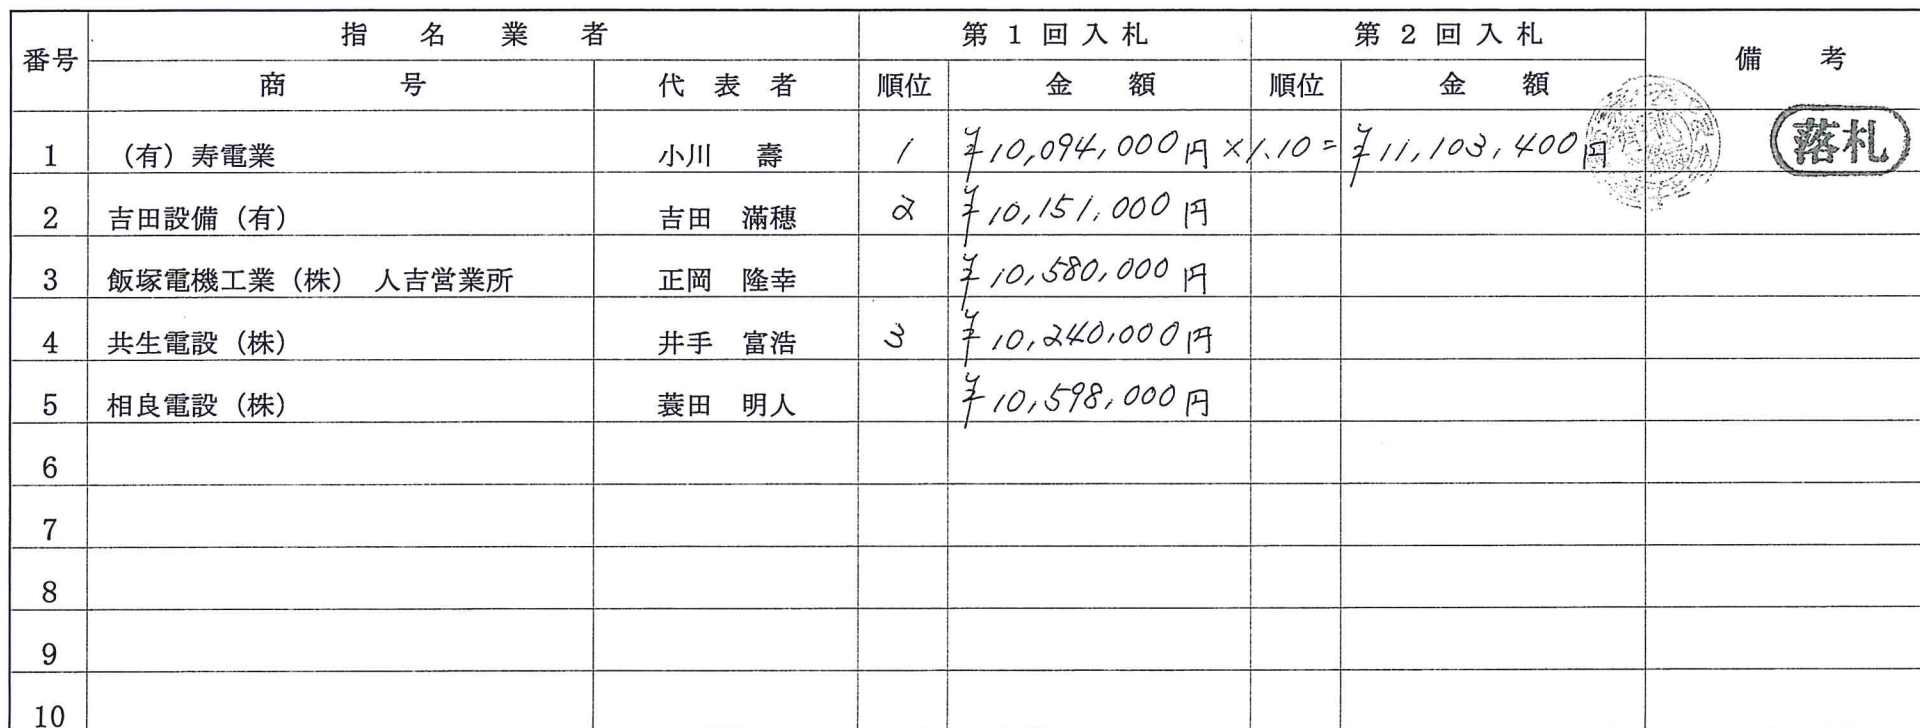 番号 指名業者 第1回入札 第2回入札 備考
商号 代表者 順位 金額 順位 金額
1 (有)寿電業 小川 壽 1 ¥10,094,000円×1.10=¥11,103,400円 落札
2 吉田設備(有) 吉田 滿穗 2 ¥10,151,000円
3 飯塚電機工業(株) 人吉営業所 正岡 隆幸 ¥10,580,000円
4 共生電設(株) 井手 富浩 3 ¥10,240,000円
5 相良電設(株) 蓑田 明人 ¥10,598,000円
6
7
8
9
10